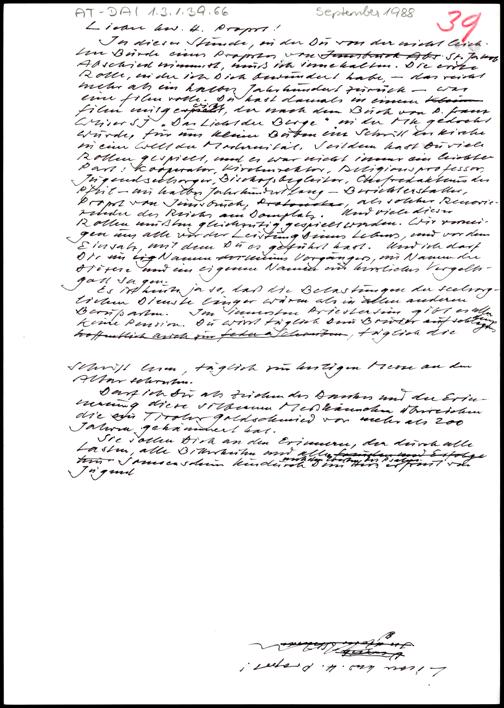 AT-DAI 1.3.1.39.66 September 1988
39
Lieber hw. H. Propst!
In dieser Stunde, in der Du von der nicht leich-
ten Bürde eines Propstes von Innsbruck St. Jakob
Abschied nimmst, muß ich innehalten. Die erste
Rolle, in der ich Dich bewundert habe, – das reicht
mehr als ein halbes Jahrhundert zurück – war
eine Filmrolle. Du hast damals in einem
Film mitgespielt, der nach dem Buch von P. Franz
Weiser SJ „Das Licht der Berge" in der MK gedreht
wurde, für uns kleine Buben ein Schritt der Kirche
in eine Welt der Modernität. Seitdem hast Du viele
Rollen gespielt, und es war nicht immer ein leichter
Part: Kooperator, Kirchenrektor, Religionsprofessor,
Jugendseelsorger, Bischofsbegleiter, Chefredakteur des
Pfeil – ein halbes Jahrhundert lang – Berichterstatter,
Propst von Innsbruck, als solcher Renovie-
render des Reichs am Domplatz. Und viele dieser
Rollen mußten gleichzeitig gespielt werden. Wir vernei-
gen uns alle vor der Leistung Deines Lebens, und vor dem
Einsatz, mit dem Du es geführt hast. Und ich darf
Dir im Namen Vorgänger, im Namen der
Diözese und im eigenen Namen ein herzliches Vergelts-
gott sagen.
Es ist heute ja so, daß die Belastungen der seelsorg-
lichen Dienste länger währen als in allen anderen
Berufsarten. Im innersten Priestersein gibt es
keine Pension. Du wirst täglich Dein Brevier aufschlagen,
hoffentlich auch zur Feder, täglich die
Schrift lesen, täglich zur heiligen Messe an den
Altar schreiten.
Darf ich Dir als Zeichen des Dankes und der Erin-
nerung diese silbernen Meßkännchen überreichen
die ein Tiroler Goldschmied vor mehr als 200
Jahren gehämmert hat.
Sie sollen Dich an den Erinnern, der durch alle
Lasten, alle Bitterkeiten und alle Freuden und Erfolge
Jugend
Lieber hw. H. Propst!